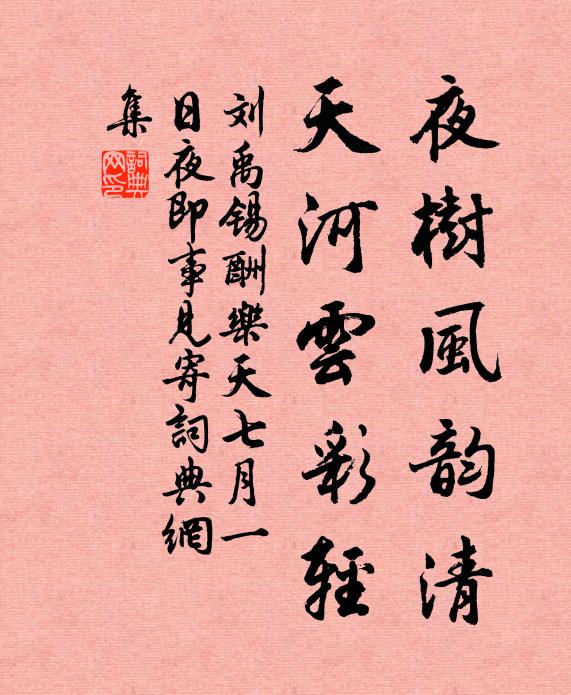 夜樹風韵清
天河雲彩輕
刘禹锡酬樂天七月一
日夜即事見寄詞典網
集
詞典
网印